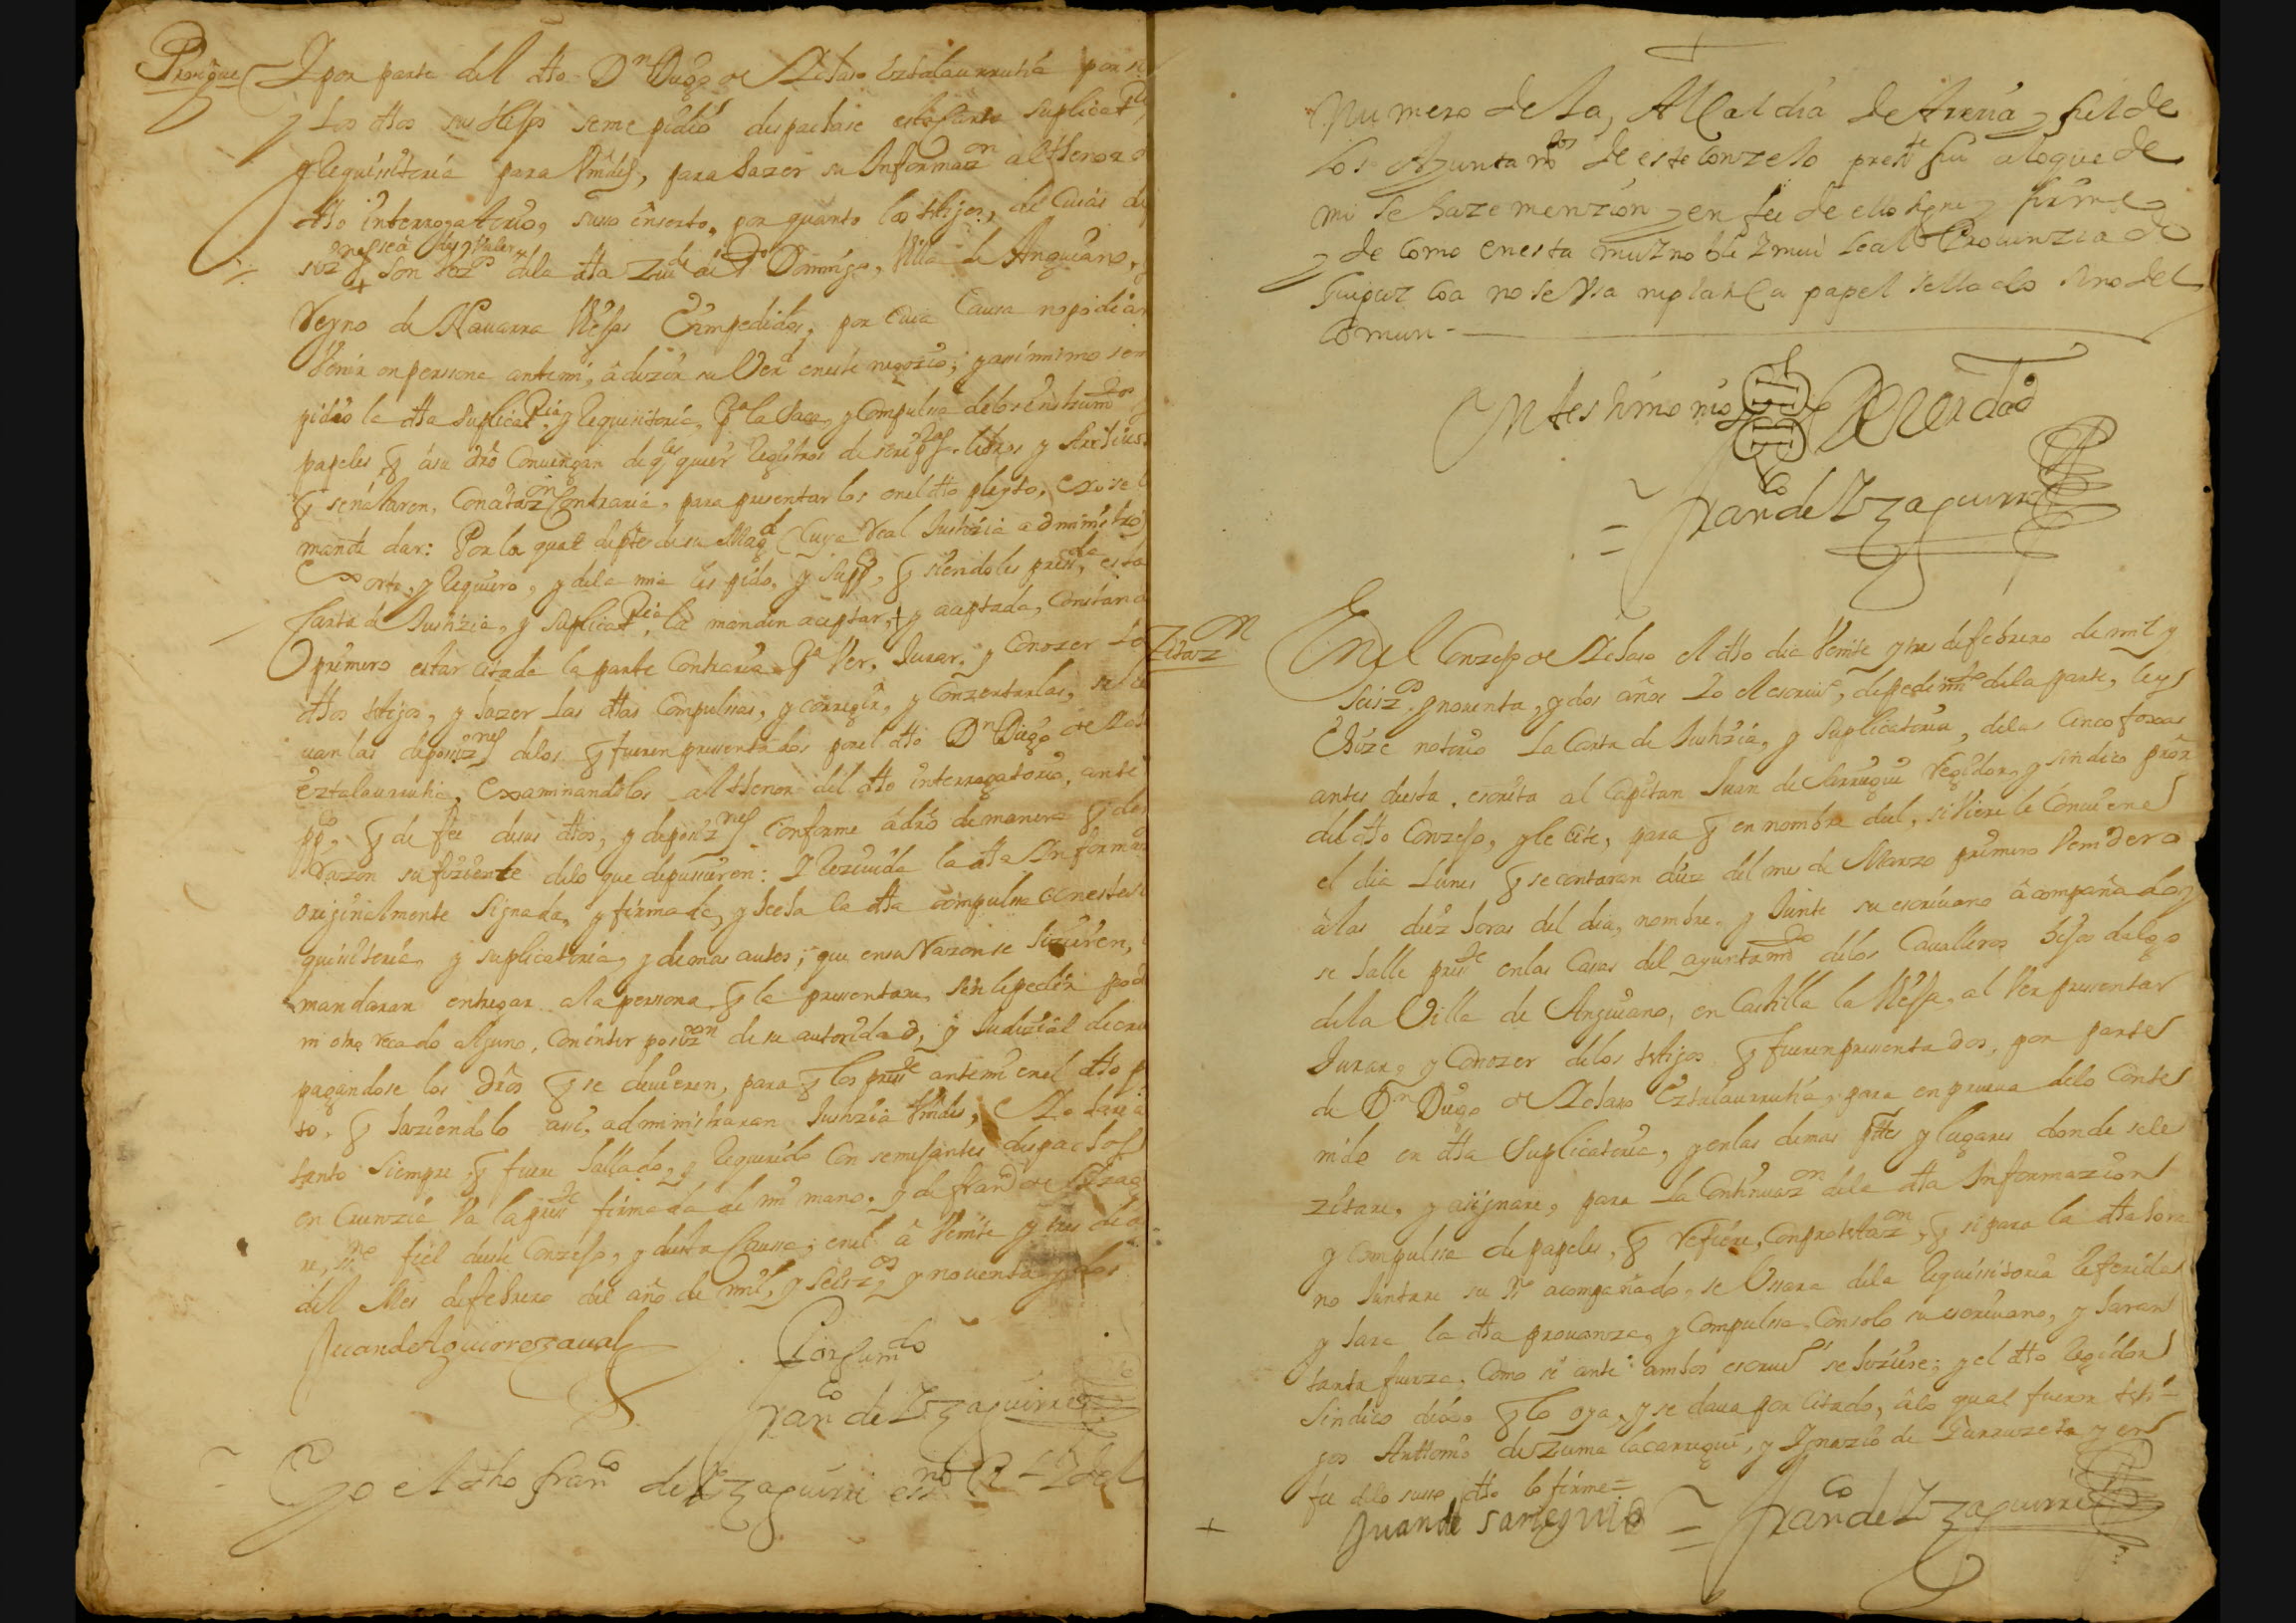 Prosigue
Y por parte del dho Dn Diego de Aztaso Eztalaurruthia por si
y Los dhos sus Hijos seme pidió despachase esta Carta Suplicatria
y Requisitoria para Vmdes, para hazer su Informazon al thenor
dho interrogatorio, suso inserto, por quanto los thtigos, de Cuias de
posizones se á de Valer
son Vezos dela dha Ziud de Sto Domingo, Villa de Anguiano,
Reyno de Navarra Viejos e impedidos, por cuia Causa no podian
Venir en perssona ante mi, á dezir su Verd en este negozio; y assi mismo sem
pidió la dha Suplicatria y Requisitoria, Pa la Saca, y Compulsa delos instrumos
papeles q á su dro Convengan de qles quier Registros de scripras libros y Archivos
q señalaren, Con citazon Contraria, para presentar los en el dho pleyto, e yo se l
mande dar: Por la qual de pte de su Magd (Cuya Real Justizia administro)
exorto, y requiero, y dela mia les pido, y Suppco, q siendoles presda esta
Carta de Justizia, y Suplicatria, la manden aceptar, y aceptada, Constando
primero estar citada la parte Contraria Pa Ver, Jurar, y Conozer Lo
dhos thtigos, y hazer Las dhas Compulsas, y corregir, y Conzertarlas, rezi
van las deposizones delos q fueren presentados por el dho Dn Diego de Azta
Eztalaurruthia, Examinandolos al thenor del dho interrogatorio, ante
ppco, q de fee desus dhos, y deposizones Conforme á dro de manera q den
Razon sufiziente delo que depussieren: Y Rezivida la dha Informaz
originalmente Signada, y firmada, y hecha la dha compulsa con esta re
quisitoria, y suplicatoria, y demas autos, que en su Razon se hizieren,
mandaran entregar ala perssona q la presentare, sin le pedir pod
ni otro recado alguno, Con interposizon de su autoridad, y Judizial decre
pagandose los dros q se devieren, para q los preste ante mi en el dho p
to, q haziendolo assi, administraran Justizia Vmdes, y lo hare a
tanto Siempre q fuere hallado, y Requerido Con semejantes despachos
en Creenzia Va la preste firmada de mi mano, y de franco de Yzag
re, sno fiel deste Conzejo, y desta Caussa; en el á Veinte y tres dias
del Mes de febrero del año de mil, y Seiszos y noventa y dos
Juan de Aguirrezaval
Por su mdo
Franco de Yzaguirre
E yo el dho franco de Yzaguirre essno R l y del
Numero de la Alcaldia de Areria, y fiel de
los Ayuntamtos de este Conzejo preste fui a lo que de
mi se haze menzion y en fee de ello signe y firme
y de como en esta muy noble y mui leal Provinzia de
Guipuzcoa no se Vsa ni platica papel sellado sino del
Comun -
En testimonio de Verdad
Franco de Yzaguirre
Zitazon
En el Conzejo de Aztaso el dho dia Veinte y tres de febrero de mil y
Seiszos y noventa, y dos años Yo el escrivo, de pedimto dela parte, ley y
hize notorio La Carta de Justizia, y Suplicatoria, delas Cinco foxas
antes desta, escrita al Capitan Juan de Sarregui Regidor, y sindico pror
del dho Conzejo, y le cite, para q en nombre del, si Viere le Conviene
el dia Lunes q se contaran diez del mes de Marzo primero Vendero
á las diez horas del dia, nombre, y Junte su escrivano acompañado y
se halle preste en las Casas del ayuntamto delos Cavalleros hijos dalgo
dela Villa de Anguiano, en Castilla la Vieja, al Ver presentar
Jurar, y Conozer delos thtigos q fueren pressentados, por parte
de Dn Diego de Aztaso Eztalaurruthia, para en prueva delo Conte
nido en dha Suplicatoria, y en las demas ptes y lugares donde se le
zitare, y asignare, para La Continuazon dela dha Informazion
y Compulssa de papeles, q Refiere, Con protestazon, q si para la dha hora
no Juntare su sno acompañado, se Vssara dela Requissitoria Referida
y hara la dha provanza, y Compulssa Con solo su escrivano, y haran
tanta fuerza, Como si ante ambos escrivos se hiziese; y el dho Regidor
Sindico dixo, q lo oya, y se dava por Citado, á lo qual fueron testi=
gos Anttonio de Zumalacarregui, y Ygnazio de Yurruzeta y en
fee delo susso dho lo firme=
Juan de Sarregui
Franco de Yzaguirre